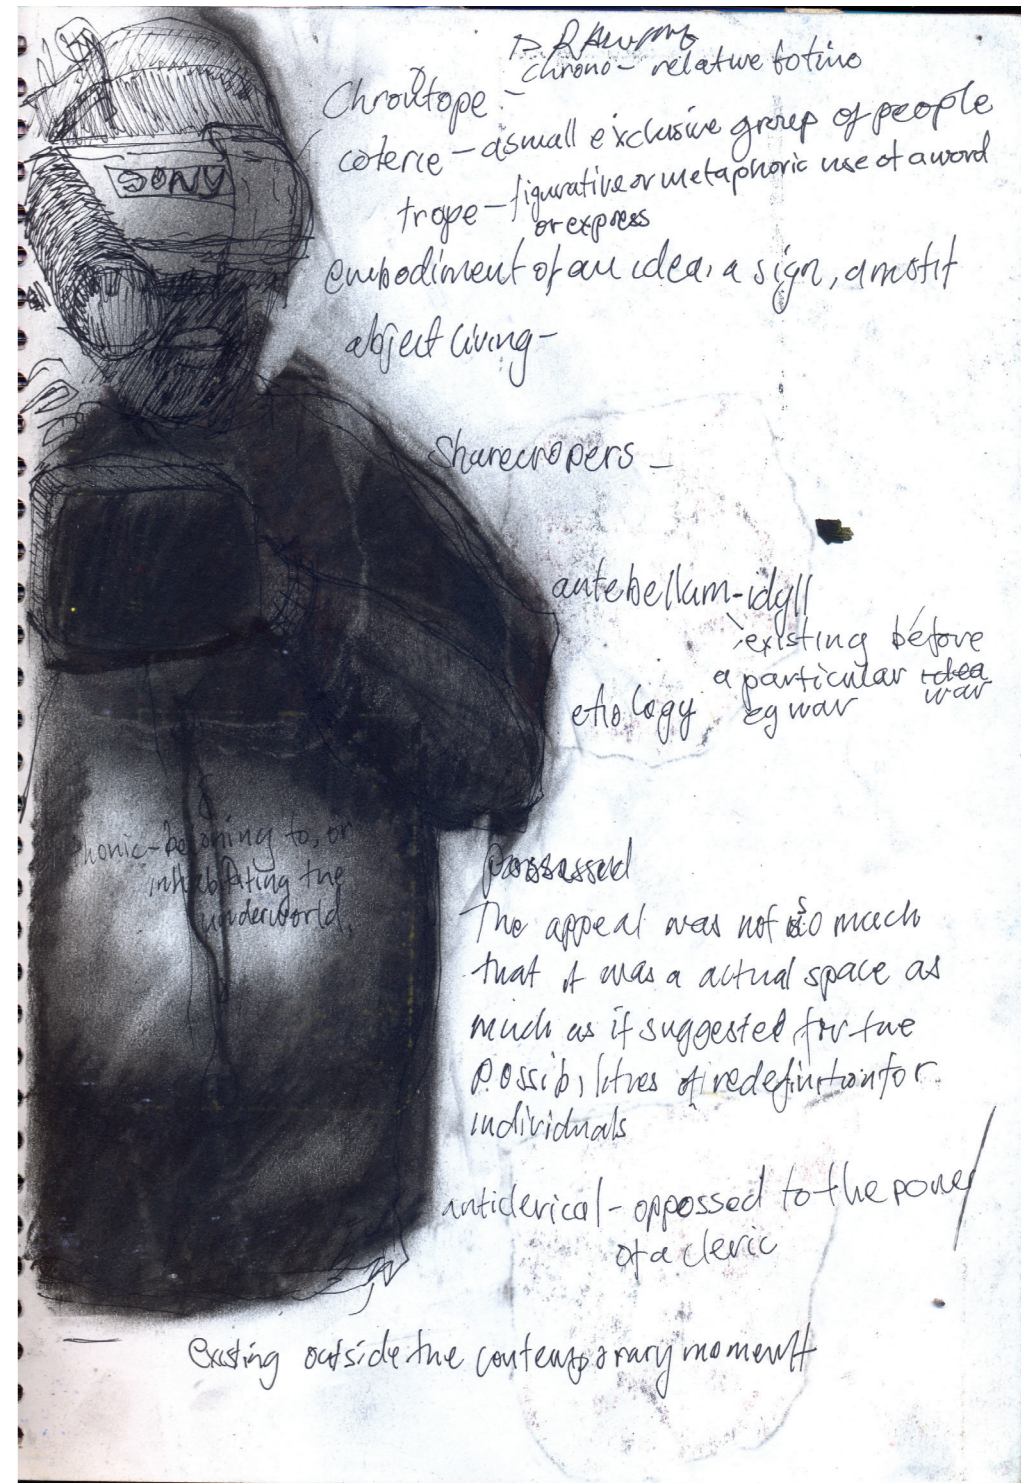 Chronotope - chrono - relative to time
coterie - a small exclusive group of people
trope - figurative or metaphoric use of a word
or express
SONY
embodiment of an idea, a sign, a motif
abject living -
Sharecropers -
antebellum-idyll
existing before
a particular idea
war
etiology eg war
honic - beloning to, or
inhebitating the
underworld.
possessed
The appeal was not so much
that it was a actual space as
much as it suggested for the
possibilities of redefinition for
individuals
anticlerical - oppossed to the power
of a cleric
existing outside the contemporary moment